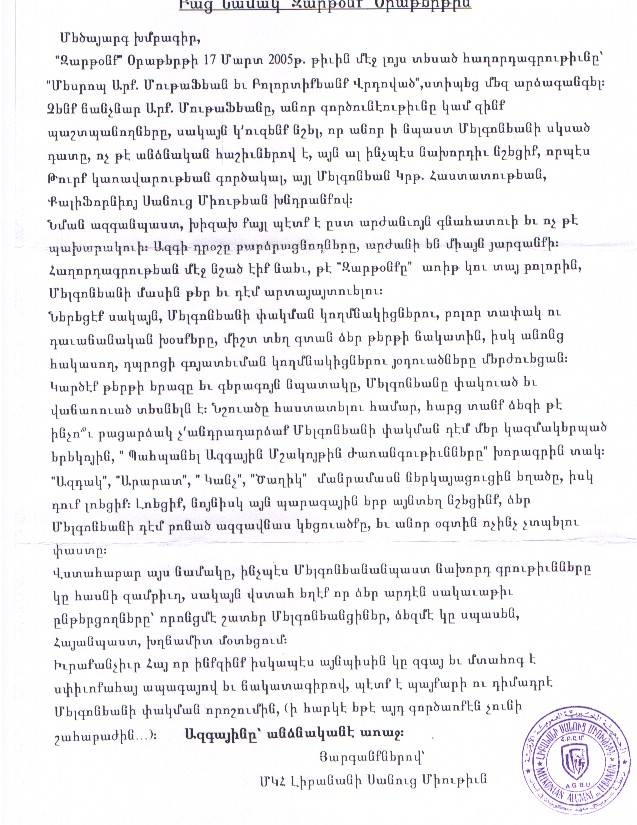 Բաց Նամակ Զարթօնք Օրաթերթին
Մեծայարգ խմբագիր,
"Զարթօնք" Օրաթերթի 17 Մարտ 2005թ. թիւին մէջ լոյս տեսած հաղորդագրութիւնը՝
"Մեսրոպ Արք. Մութաֆեան եւ Բոլորտիքեանք Վրդոված",ստիպեց մեզ արձագանգել:
Չենք ճանչնար Արք. Մութաֆեանը, անոր գործունէութիւնը կամ զինք
պաշտպանողները, սակայն կ՚ուզենք նշել, որ անոր ի նպաստ Մելգոնեանի սկսած
դատը, ոչ թէ անձնական հաշիւներով է, այն ալ ինչպէս նախորդիւ նշեցիք, որպէս
Թուրք կառավարութեան գործակալ, այլ Մելգոնեան Կրթ. Հաստատութեան,
Քալիֆորնիոյ Սանուց Միութեան խնդրանքով:
Նման ազգանպաստ, խիզախ քայլ պէտք է ըստ արժանւոյն գնահատուի եւ ոչ թէ
պախարակուի: Ազգի դրօշը բարձրացնողները, արժանի են միայն յարգանքի:
Հաղորդագրութեան մէջ նշած էիք նաեւ, թէ "Զարթօնքը" առիթ կու տայ բոլորին,
Մելգոնեանի մասին թեր եւ դէմ արտայայտուելու:
Ներեցէք սակայն, Մելգոնեանի փակման կողմնակիցներու, բոլոր տափակ ու
դաւանանական խօսքերը, միշտ տեղ գտան ձեր թերթի ճակատին, իսկ անոնց
հակասող, դպրոցի գոյատեւման կողմնակիցներու յօդուածները մերժուեցան:
Կարծէք թերթի երազը եւ գերագոյն նպատակը, Մելգոնեանը փակուած եւ
վաճառուած տեսնելն է: Նշուածը հաստատելու համար, հարց տանք ձեզի թէ
ինչո՞ւ բացարձակ չ՚անդրադարձաք Մելգոնեանի փակման դէմ մեր կազմակերպած
երեկոյին, " Պահպանել Ազգային Մշակոյթին Ժառանգութիւնները" խորագրին տակ:
"Ազդակ", "Արարատ", " Կանչ", "Ծաղիկ" մանրամասն ներկայացուցին եղածը, իսկ
դուք լռեցիք: Լռեցիք, նոյնիսկ այն պարագային երբ այնտեղ նշեցինք, ձեր
Մելգոնեանի դէմ բռնած ազգավնաս կեցուածքը, եւ անոր օգտին ոչինչ չտպելու
փաստը:
Վստահաբար այս նամակը, ինչպէս Մելգոնեանանպաստ նախորդ գրութիւնները
կը հասնի զամբիւղ, սակայն վստահ եղէք որ ձեր արդէն սակաւաթիւ
ընթերցողները՝ որոնցմէ շատեր Մելգոնեանցիներ, ձեզմէ կը սպասեն,
Հայանպաստ, խղճամիտ մօտեցում:
Իւրաքանչիւր Հայ որ ինքզինք իսկապէս այնպիսին կը զգայ եւ մտահոգ է
սփիւռքահայ ապագայով եւ ճակատագիրով, պէտք է պայքարի ու դիմադրէ
Մելգոնեանի փակման որոշումին, (ի հարկէ եթէ այդ գործառքէն չունի
շահաբաժին...): Ազգայինը՝ անձնականէ առաջ:
Յարգանքներով՝
ՄԿՀ Լիբանանի Սանուց Միութիւն
ԼԻԲԱՆԱՆԻ ՍԱՆՈՒՑ ՄԻՈՒԹԻՒՆ
A.G.B.U.
MELKONIAN ALUMNI LEBANON